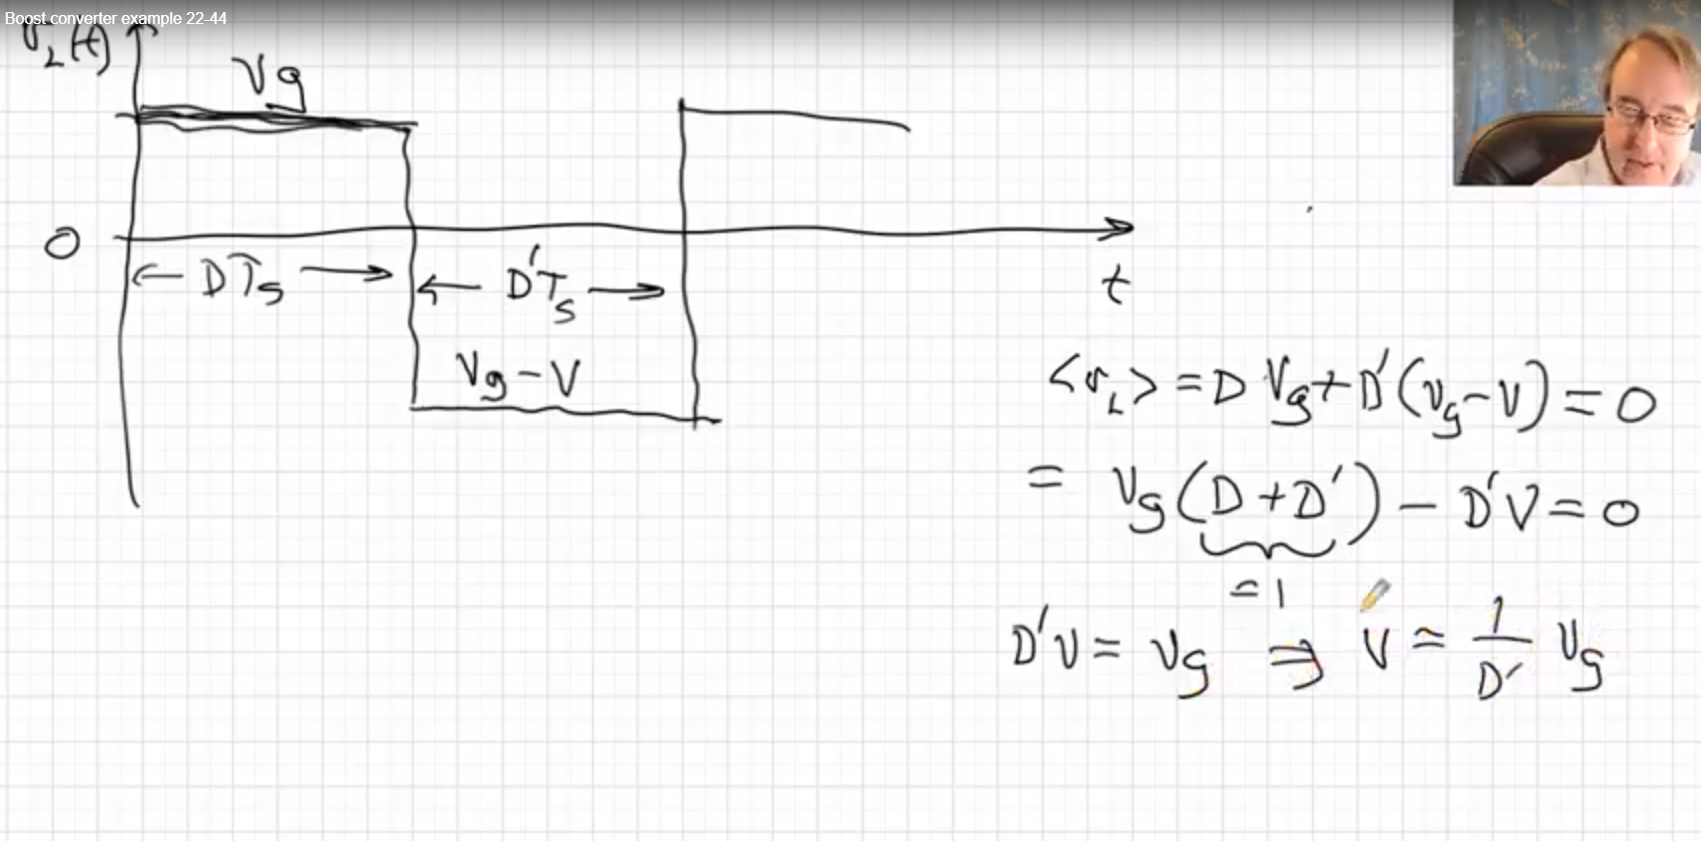 Boost converter example 22-44
v_L(t)
Vg
0
← DTs →
← D'Ts →
t
Vg - V
<v_L> = D Vg + D'(Vg - V) = 0
= Vg (D + D') - D'V = 0
= 1
D'V = Vg ⇒ V = 1/D' Vg